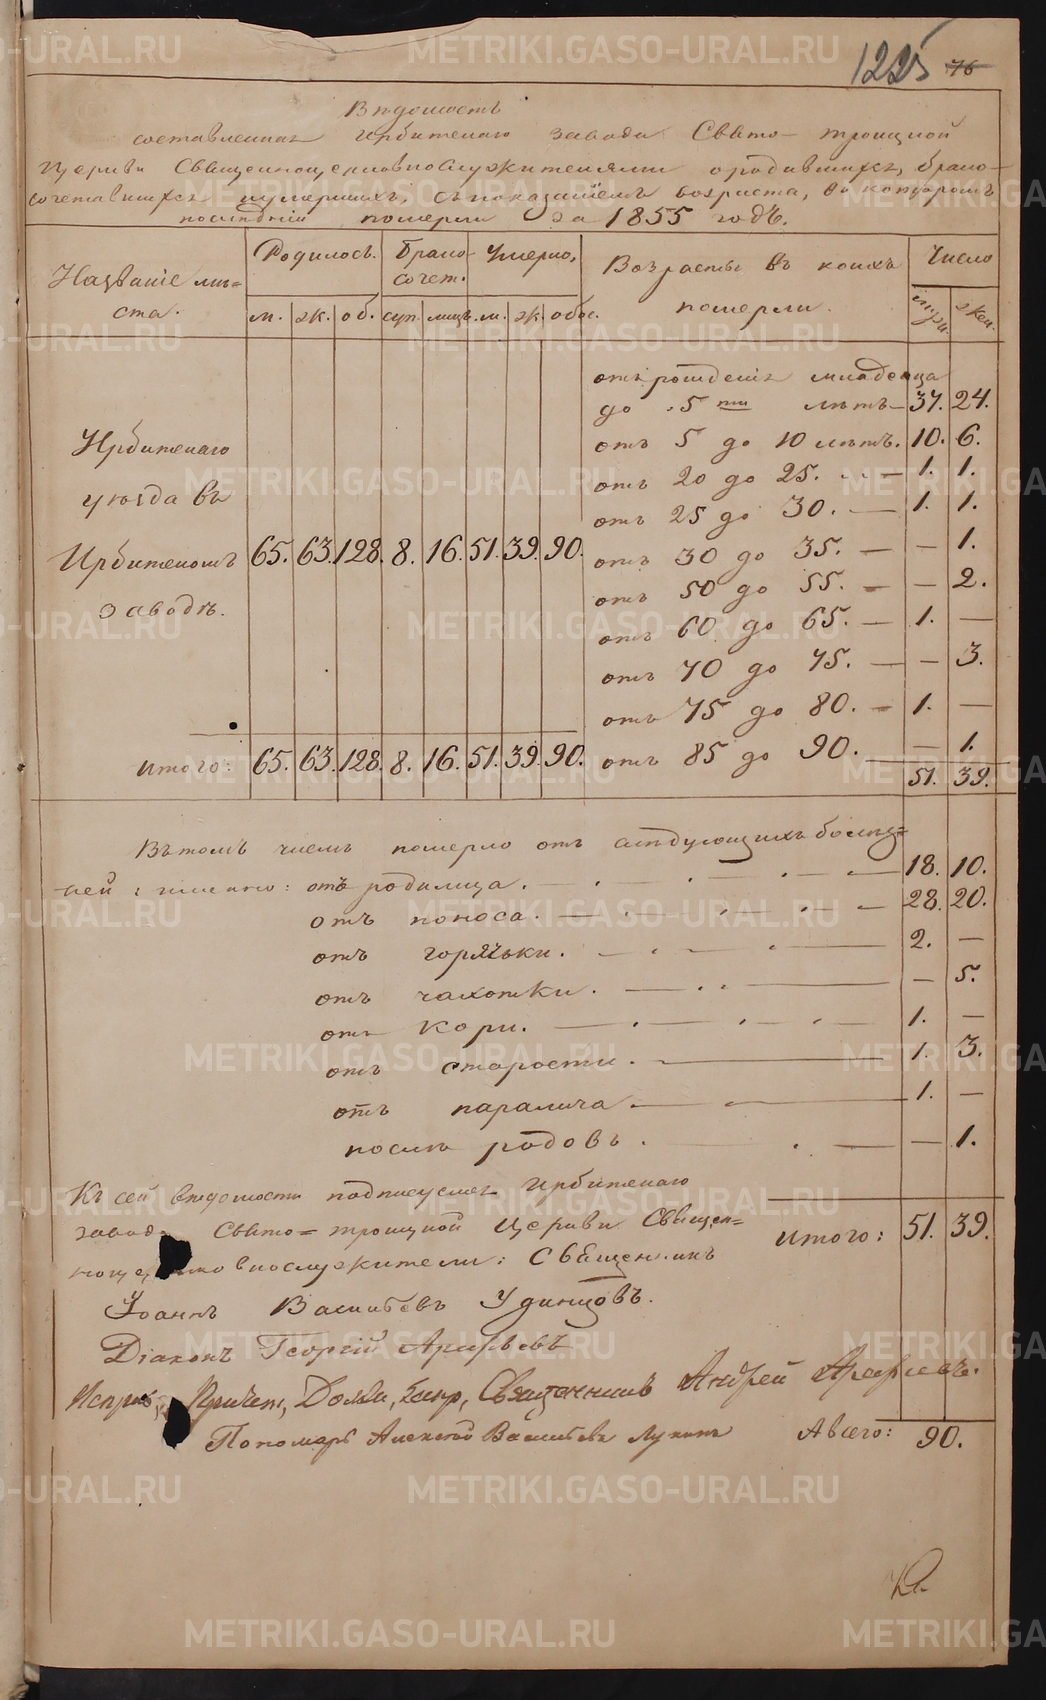 1225 76
Вѣдомость
составленная Ирбитскаго завода Свято-троицкой
Церкви Священноцерковнослужителями о родившихся, брако-
сочетавшихся и умершихъ, съ показаніемъ возраста, въ которомъ
послѣдніи померли за 1855 годъ.
Названіе мѣ-
ста.
Родилось. Брако-
сочет. Умерло.
Возрасты въ коихъ
померли.
Число
м. ж. об. суп. лицъ. м. ж. обое.
муж. жен.
отъ рожденія младенца
до 5 ти лѣтъ — 37. 24.
отъ 5 до 10 лѣтъ. 10. 6.
отъ 20 до 25. — 1. 1.
отъ 25 до 30. — 1. 1.
отъ 30 до 35. — — 1.
отъ 50 до 55. — — 2.
отъ 60 до 65. — 1. —
отъ 70 до 75. — — 3.
отъ 75 до 80. — 1. —
отъ 85 до 90. — 1.
51. 39.
Ирбитскаго
уѣзда въ
Ирбитскомъ
Заводѣ.
65. 63. 128. 8. 16. 51. 39. 90.
Итого: 65. 63. 128. 8. 16. 51. 39. 90.
Въ томъ числѣ померло отъ слѣдующихъ болѣз-
ней имянно: отъ родимца. — 18. 10.
отъ поноса. — 28. 20.
отъ горячки. — 2. —
отъ чахотки. — — 5.
отъ кори. — 1. —
отъ старости. — 1. 3.
отъ паралича. — 1. —
послѣ родовъ. — — 1.
Итого: 51. 39.
Къ сей вѣдомости подписуемся Ирбитскаго
завода Свято-троицкой Церкви Священ-
ноцерковнослужители: Священникъ
Іоаннъ Васильевъ Удинцовъ.
Діаконъ Георгій Арефьевъ
Причет, Долж, Священникъ Андрей Арефьевъ.
Пономарь Алексей Васильевъ Лукинъ
А всего: 90.
METRIKI.GASO-URAL.RU